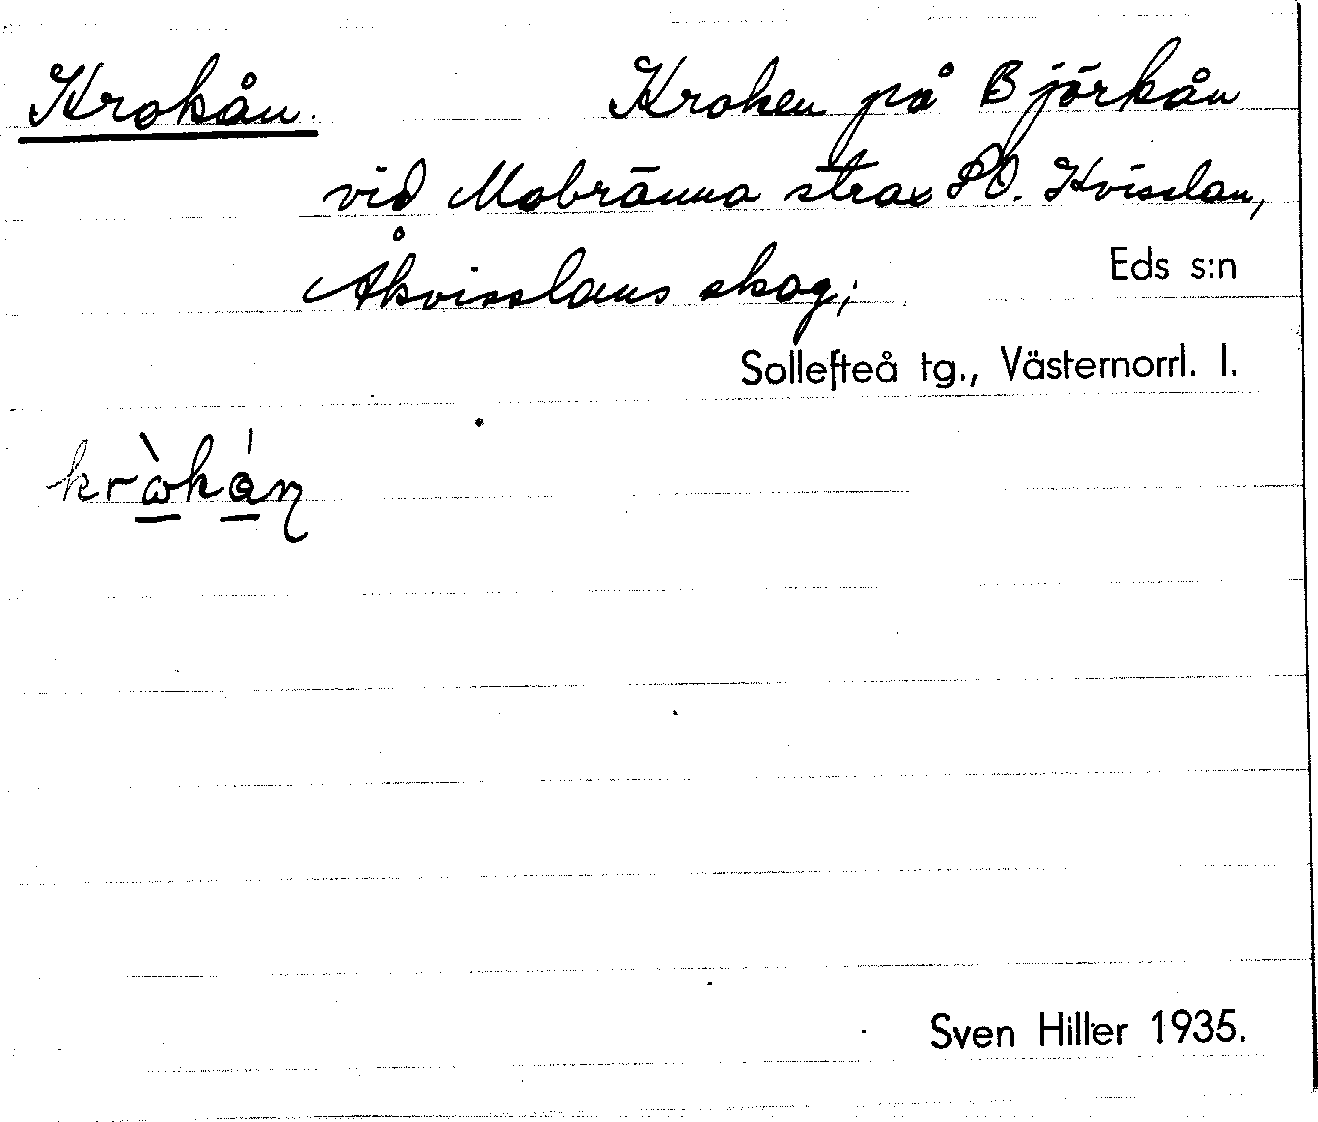 Krokån. Kroken på Björkån
vid Mobränna strax SO. Kvisslan,
Åkvisslans skog; Eds s:n
Sollefteå tg., Västernorrl. l.
Sven Hiller 1935.